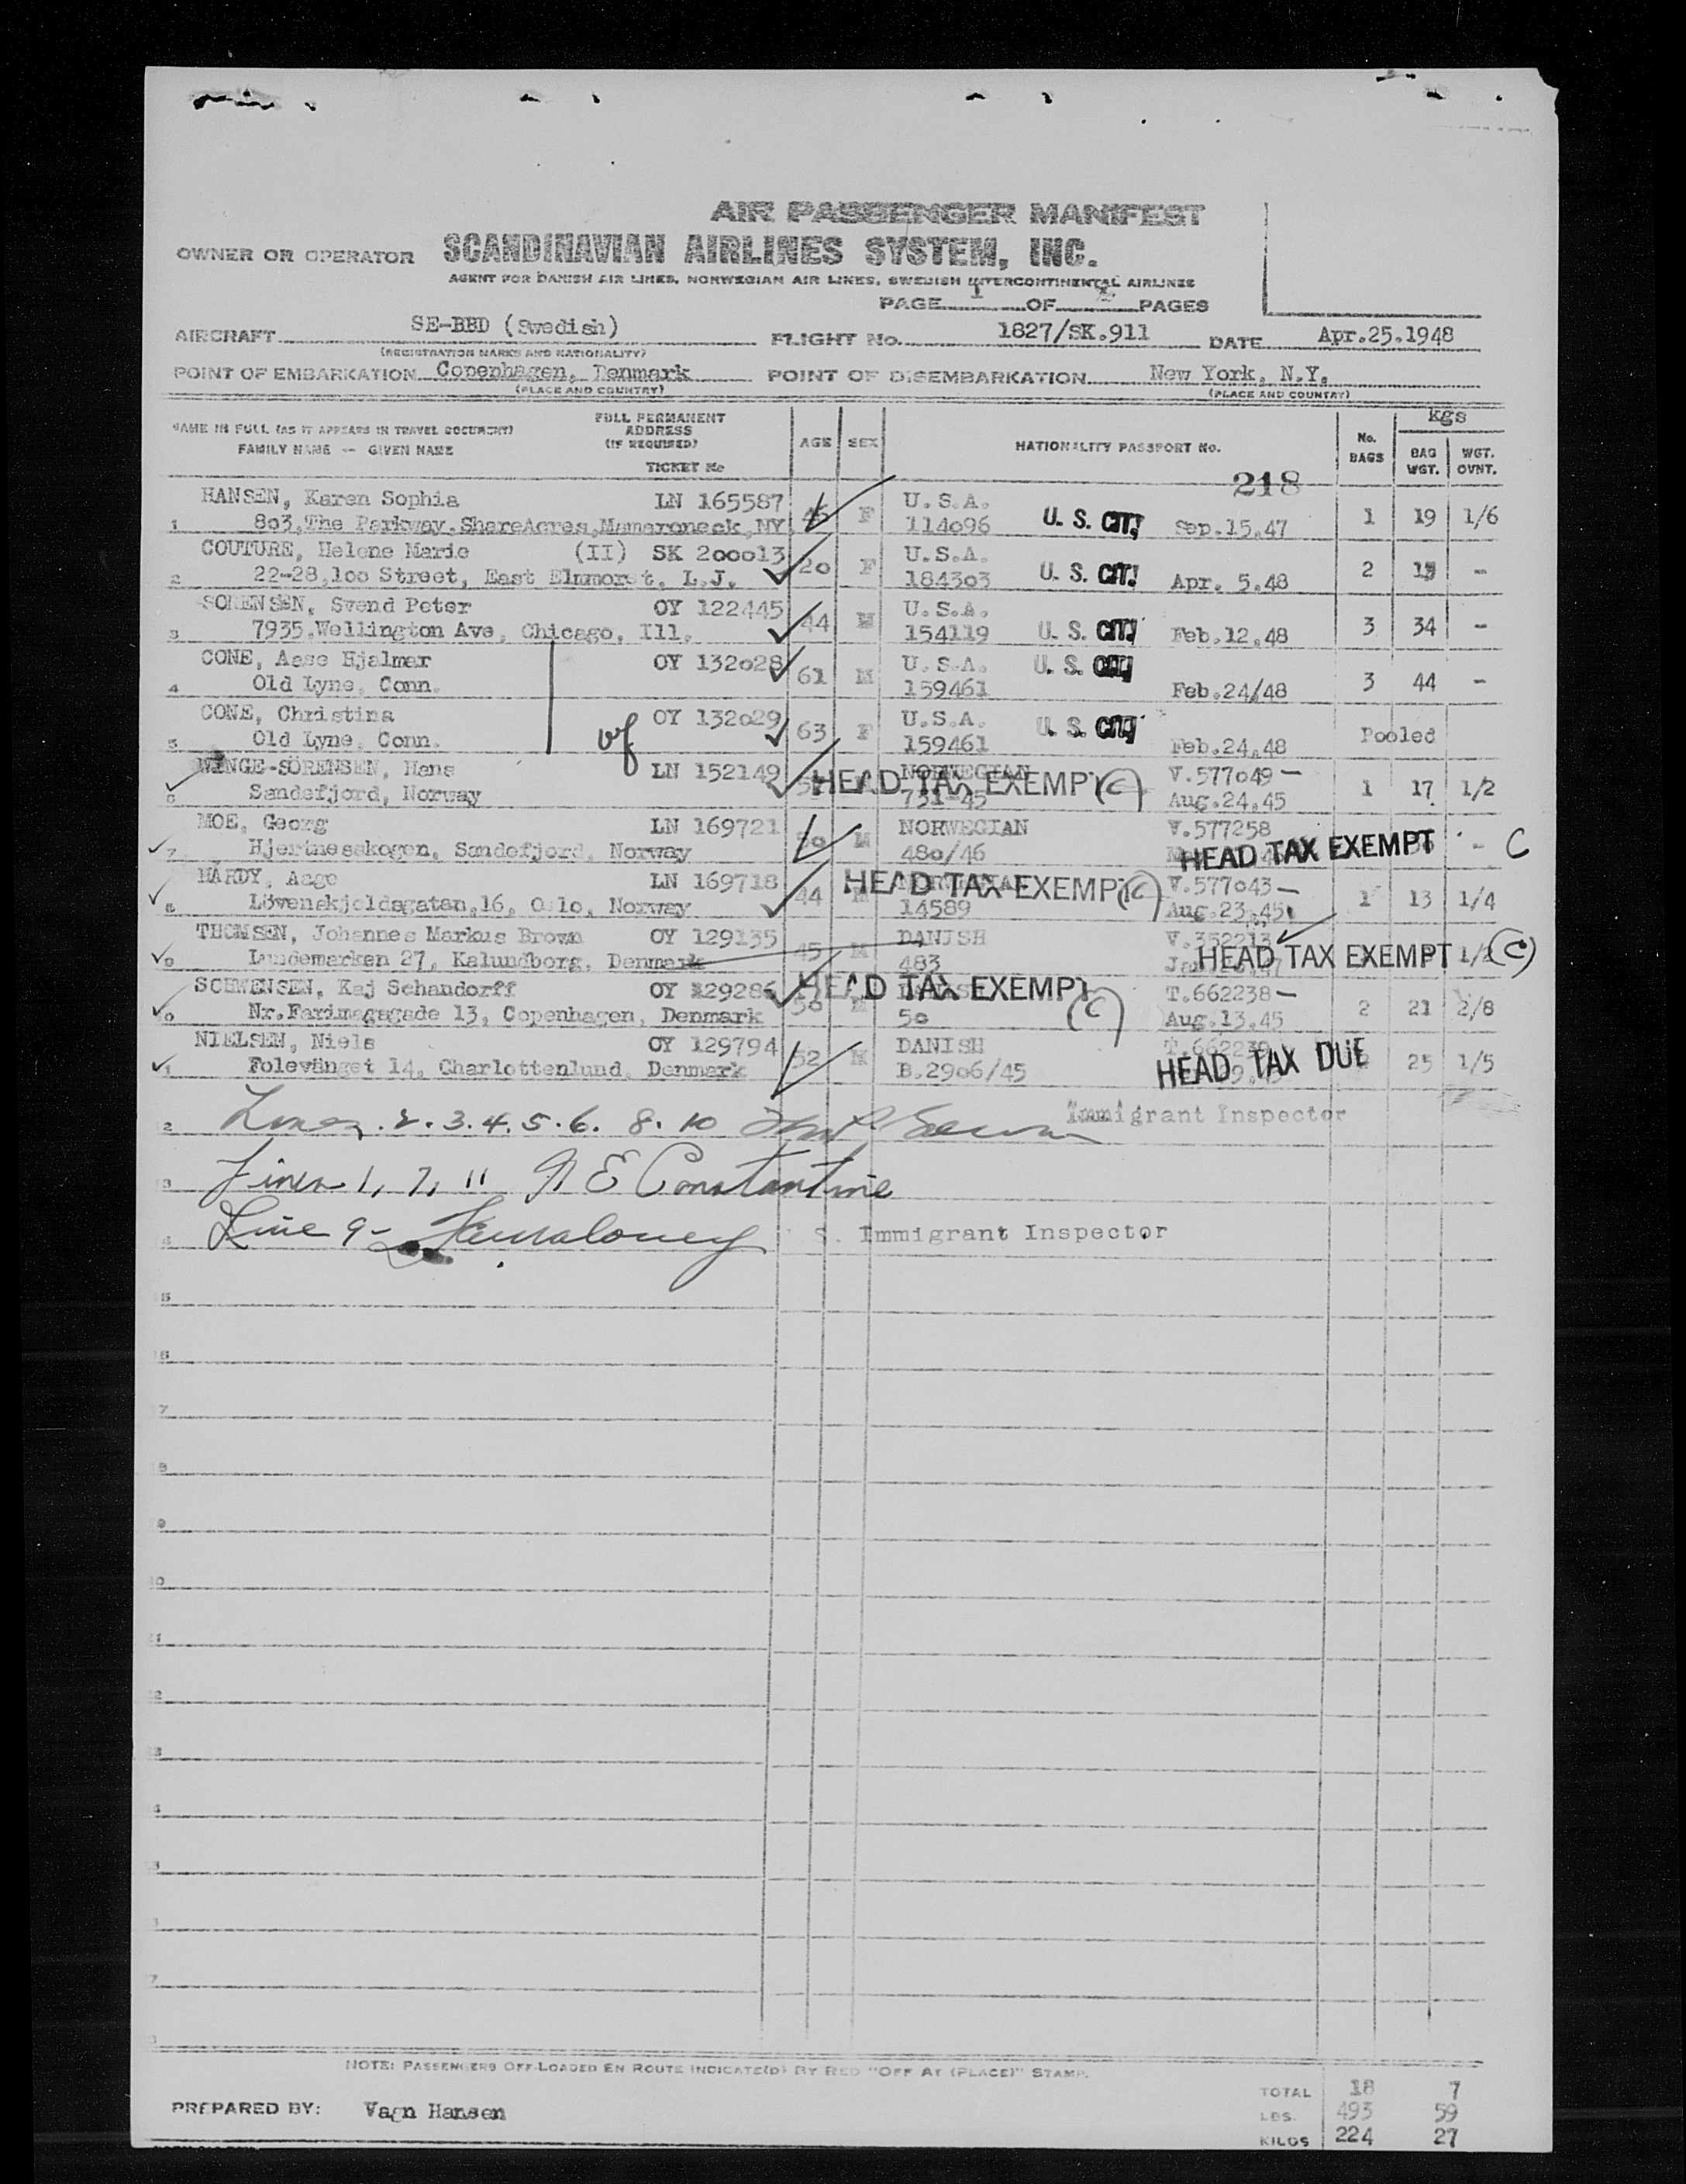 AIR PASSENGER MANIFEST
OWNER OR OPERATOR SCANDINAVIAN AIRLINES SYSTEM, INC.
AGENT FOR DANISH AIR LINES, NORWEGIAN AIR LINES, SWEDISH INTERCONTINENTAL AIRLINES
PAGE 1 OF 2 PAGES
AIRCRAFT SE-BBD (Swedish) FLIGHT No. 1827/SK.911 DATE Apr.25.1948
(REGISTRATION MARKS AND NATIONALITY)
POINT OF EMBARKATION Copenhagen, Denmark POINT OF DISEMBARKATION New York, N.Y.
(PLACE AND COUNTRY) (PLACE AND COUNTRY)
NAME IN FULL (AS IT APPEARS IN TRAVEL DOCUMENT) FULL PERMANENT ADDRESS (IF REQUIRED) AGE SEX NATIONALITY PASSPORT No. No. BAGS kgs
FAMILY NAME -- GIVEN NAME TICKET No BAG WGT. WGT. OVNT.
218
HANSEN, Karen Sophia LN 165587 F U.S.A.
1 803,The Parkway,ShareAcres,Mamaroneck,NY. 114096 U. S. CIT. Sep.15.47 1 19 1/6
COUTURE, Helene Marie (II) SK 200013 20 F U.S.A.
2 22-28,100 Street, East Elmmorst, L.J. 184303 U. S. CIT. Apr. 5.48 2 -
SORENSEN, Svend Peter OY 122445 44 M U.S.A.
3 7935,Wellington Ave, Chicago, Ill. 154119 U. S. CIT. Feb.12.48 3 34 -
CONE, Aase Hjalmar OY 132028 61 M U.S.A. U. S. CIT.
4 Old Lyne, Conn. 159461 Feb.24/48 3 44 -
CONE, Christina OY 132029 63 F U.S.A. U. S. CIT.
5 Old Lyne, Conn. wf 159461 Feb.24.48 Pooled
WINGE-SÖRENSEN, Hans LN 152149 HEAD TAX EXEMPT (C) NORWEGIAN V.577049 —
6 Sandefjord, Norway 731-45 Aug.24.45 1 17 1/2
MOE, Georg LN 169721 50 M NORWEGIAN V.577258
7 Hjertnesskogen, Sandefjord, Norway 480/46 HEAD TAX EXEMPT - C
HARDY, Aage LN 169718 44 M HEAD TAX EXEMPT (C) V.577043 —
8 Lövenskjoldsgatan,16, Oslo, Norway 14589 Aug.23.45 1 13 1/4
THOMSEN, Johannes Markus Brown OY 129135 45 M DANISH V.352213
9 Lundemarken 27, Kalundborg, Denmark 483 HEAD TAX EXEMPT (C)
SCHWENSEN, Kaj Schandorff OY 129286 HEAD TAX EXEMPT (C) T.662238 —
0 Nr.Farimagsgade 13, Copenhagen, Denmark 50 M 50 Aug.13.45 2 21 2/8
NIELSEN, Niels OY 129794 52 M DANISH T.662239
1 Folevänget 14, Charlottenlund, Denmark B.2906/45 HEAD TAX DUE 25 1/5
2 Lines. 2. 3. 4. 5. 6. 8. 10 Immigrant Inspector
3 Lines 1, 7, 11 N E Constantine
4 Line 9 - S. Immigrant Inspector
5
6
7
8
9
10
11
12
13
NOTE: PASSENGERS OFF-LOADED EN ROUTE INDICATE(D) BY RED "OFF AT (PLACE)" STAMP.
TOTAL 18 7
PREPARED BY: Vagn Hansen LBS. 493 59
KILOS 224 27